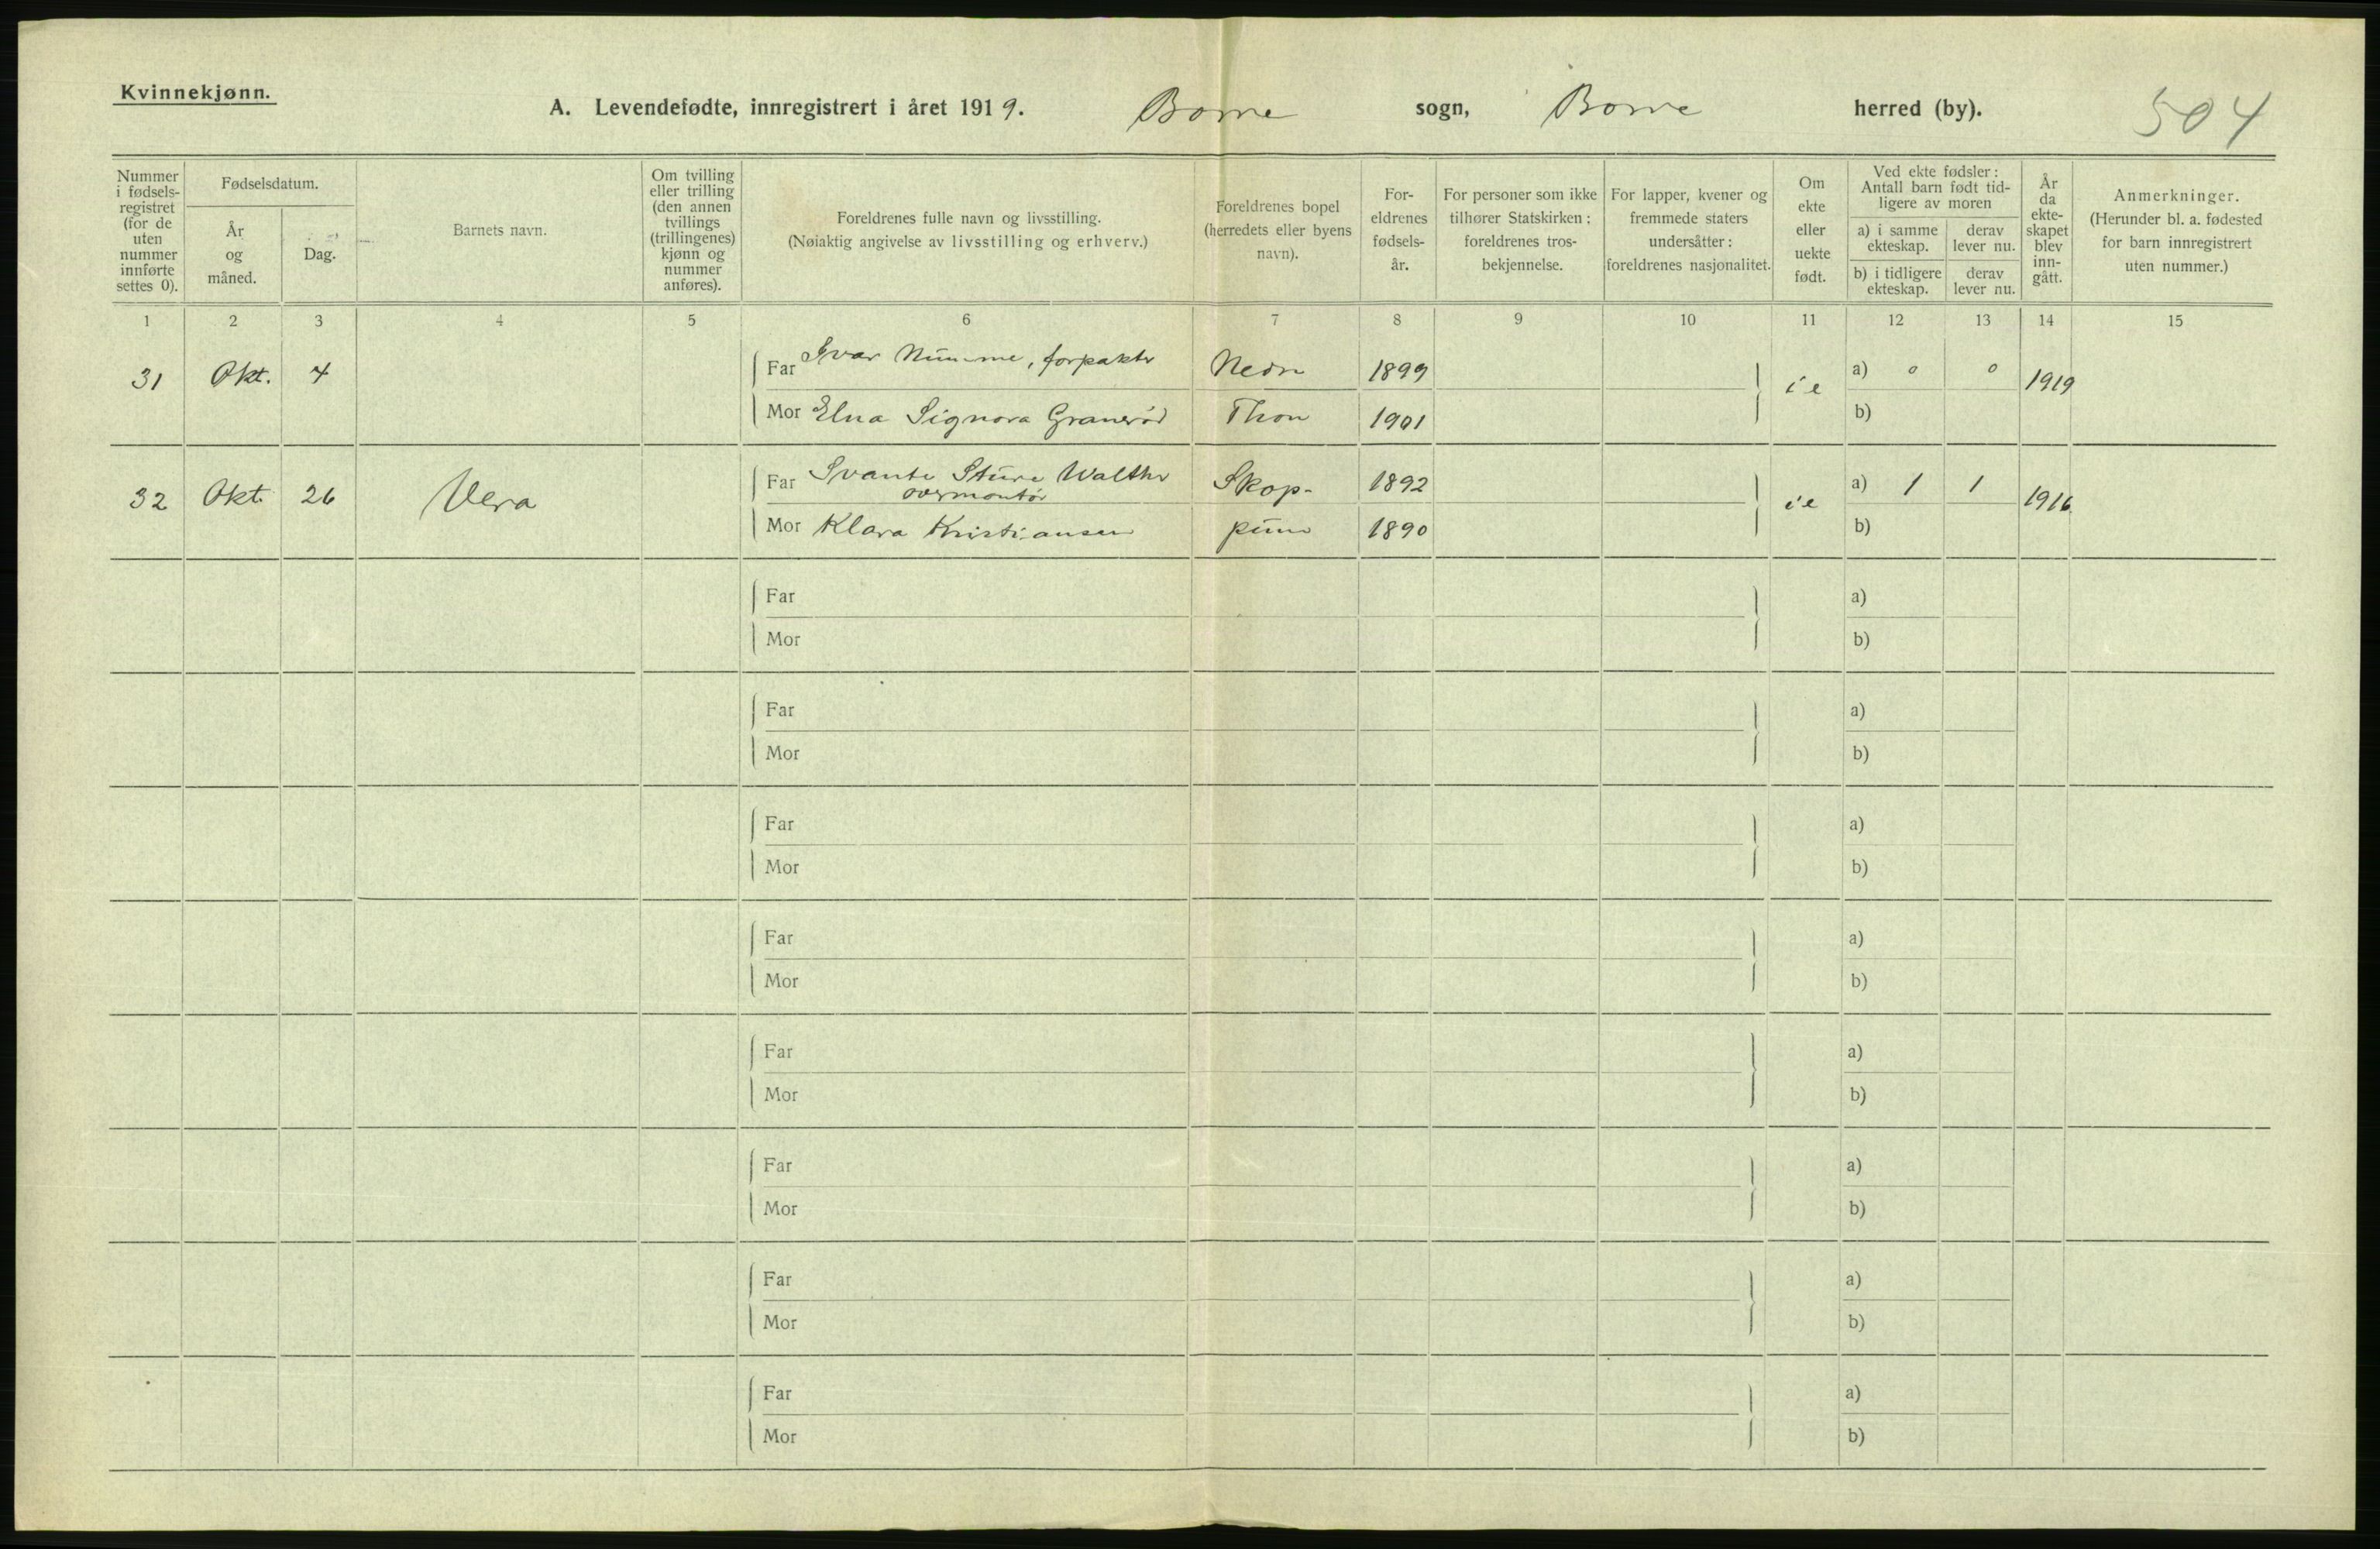 Kvinnekjønn.
A. Levendefødte, innregistrert i året 1919. Borre sogn, Borre herred (by). 504
Nummer i fødsels-registret (for de uten nummer innførte settes 0).
Fødselsdatum.
År og måned.
Dag.
Barnets navn.
Om tvilling eller trilling (den annen tvillings (trillingenes) kjønn og nummer anføres).
Foreldrenes fulle navn og livsstilling.
(Nøiaktig angivelse av livsstilling og erhverv.)
Foreldrenes bopel (herredets eller byens navn).
For-eldrenes fødsels-år.
For personer som ikke tilhører Statskirken: foreldrenes tros-bekjennelse.
For lapper, kvener og fremmede staters undersåtter: foreldrenes nasjonalitet.
Om ekte eller uekte født.
Ved ekte fødsler: Antall barn født tid-ligere av moren
a) i samme ekteskap.
derav lever nu.
b) i tidligere ekteskap.
derav lever nu.
År da ekte-skapet blev inn-gått.
Anmerkninger.
(Herunder bl. a. fødested for barn innregistrert uten nummer.)
1 2 3 4 5 6 7 8 9 10 11 12 13 14 15
31 Okt. 4 Far Ivar Numme, forpakter Nedre 1899 i e a) 0 0 1919
Mor Elna Signora Granerød Thon 1901 b)
32 Okt. 26 Vera Far Svante Sture Walther Skop- 1892 i e a) 1 1 1916
overmontør
Mor Klara Kristiansen pum 1890 b)
Far a)
Mor b)
Far a)
Mor b)
Far a)
Mor b)
Far a)
Mor b)
Far a)
Mor b)
Far a)
Mor b)
Far a)
Mor b)
Far a)
Mor b)